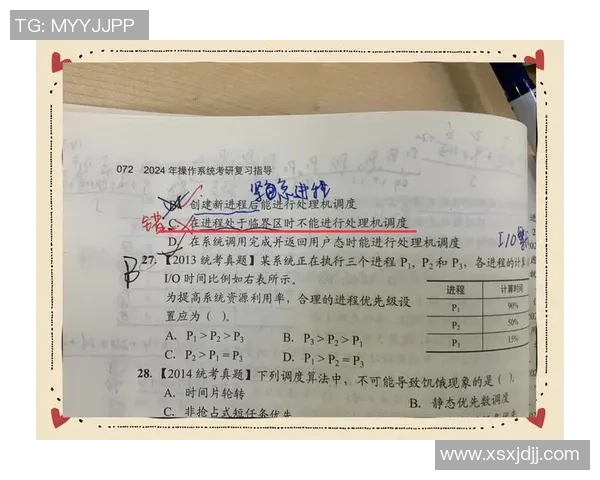 TG: MYYJJPP
072 2024年操作系统考研复习指导
紧急进程
B. 创建新进程后能进行处理机调度
错 C. 在进程处于临界区时不能进行处理机调度
D. 在系统调用完成并返回用户态时能进行处理机调度
B 27. 【2013统考真题】某系统正在执行三个进程 P₁, P₂ 和 P₃, 各进程的计算
I/O 时间比例如右表所示。
进程 计算时间
P₁ 90%
P₂ 50%
P₃ 15%
为提高系统资源利用率，合理的进程优先级设
置应为（ ）。
A. P₁ > P₂ > P₃ B. P₃ > P₂ > P₁
C. P₂ > P₁ = P₃ D. P₁ > P₂ = P₃
28. 【2014统考真题】下列调度算法中，不可能导致饥饿现象的是（ ）。
A. 时间片轮转 B. 静态优先数调度
C. 非抢占式短任务优先
www.xsxjdjj.com